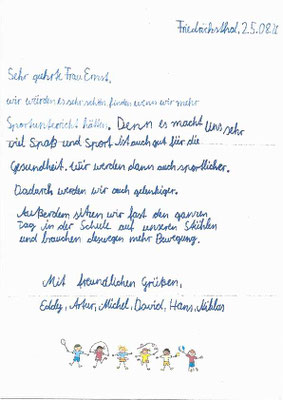 Friedrichsthal, 25.08.18
Sehr geehrte Frau Ernst,
wir würden es sehr schön finden wenn wir mehr
Sportunterricht hätten. Denn es macht uns sehr
viel Spaß und Sport ist auch gut für die
Gesundheit. Wir werden dann auch sportlicher.
Dadurch werden wir auch gelenkiger.
Außerdem sitzen wir fast den ganzen
Tag in der Schule auf unseren Stühlen
und brauchen deswegen mehr Bewegung.
Mit freundlichen Grüßen,
Eddy, Artur, Michel, David, Hans, Niklas